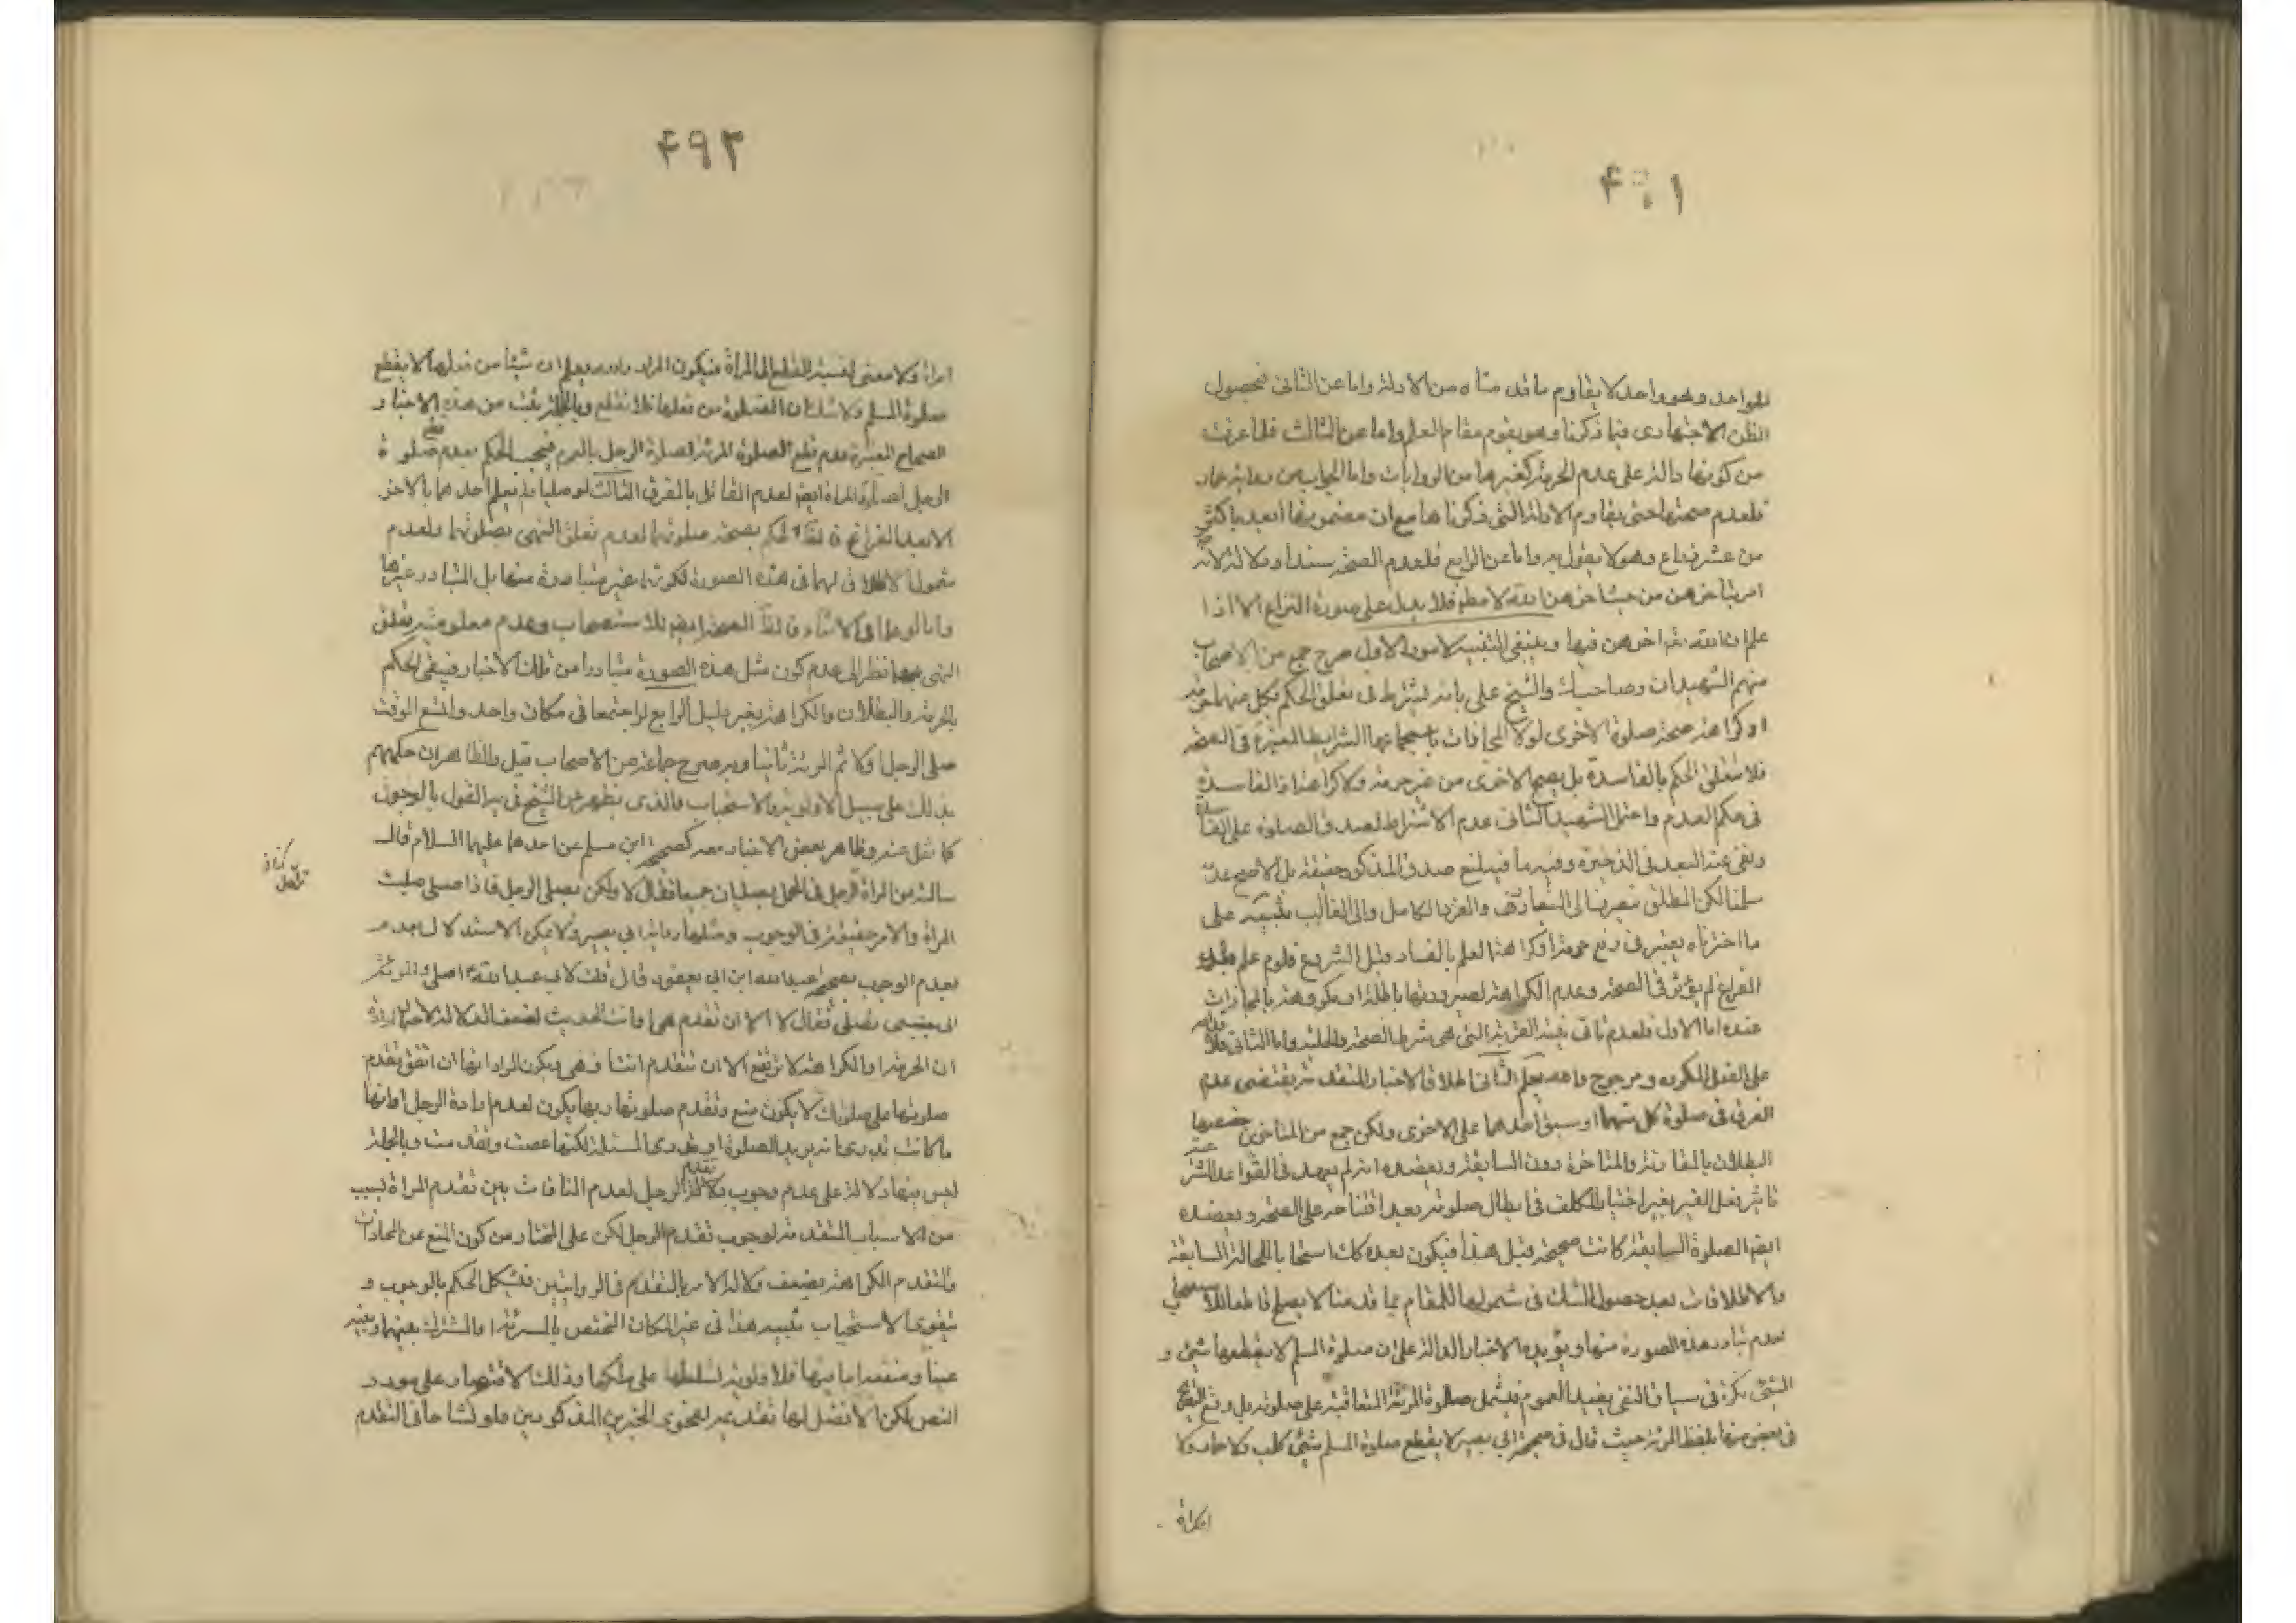 ۴۹۱
للواحد وهو واحد لا يقاوم ما قدمناه من الادلة واما عن الثانى فحصول
الظن الاجتهادى فيما ذكرنا وهو يقوم مقام العلم واما عن الثالث فلما عرفت
من كونها دالة على عدم الحرمة كغيرها من الروايات واما الجواب عن رواية عمار
فلعدم صحتها حتى يقاوم الادلة التى ذكرناها مع ان مضمونها أبعد باكثر
من عشر ذراع وهو لا يقول به واما عن الرابع فلعدم الصحة سندا ودلالة لانه
امر بتأخرهن من حيث اخرهن الله لا مطلقا فلا يدل على صورة النزاع الا اذا
علم ان الله تعالى اخرهن فيها وينبغى التنبيه لامور الاول صرح جمع من الاصحاب
منهم الشهيدان وصاحب والشيخ على بانه يشترط فى تعلق الحكم بكل منهما حرمة
او كراهة صحة صلوة الاخرى لولا المحاذات باستجماعها الشرايط المعتبرة فى الصحة
فلا يتعلق الحكم بالفاسدة بل يصح الاخرى من غير حرمة ولا كراهة اذ الفاسدة
فى حكم العدم واحتمل الشهيد الثانى عدم الاشتراط لصدق الصلوة على الفاسدة
ونفى عنه البعد فى الذخيرة وفيه ما فيه لمنع صدق المذكور حقيقة بل الاصح عدمه
سلمنا لكن المطلق ينصرف الى المتعارف والفرد الكامل والى الغالب تنبيه على
ما اخترناه يعتبر فى رفع حرمة او كراهة العلم بالفساد قبل الشروع فلو علم بعد
الفراغ لم يؤثر فى الصحة وعدم الكراهة لصيرورتها باطلة او مكروهة بالمحاذات
عنده اما الاول فلعدم تاتى نية القربة التى هى شرط الصحة والحلية واما الثانى فلاقدامه
على الفعل المكروه ومرجوح ما لم يعلم الثانى اطلاق الاخبار المتقدمة يقتضى عدم
الفرق فى صلوة كل منهما او سبق احدهما على الاخرى ولكن جمع من المتاخرين خصصوا
البطلان بالمقارنة والمتاخرة دون السابقة ويعضده انه لم يعهد فى القواعد الشرعية
تاثير فعل الغير بغير اختيار المكلف فى ابطال صلوته بعد افتتاحه على الصحة ويعضده
ايضا الصلوة السابقة كانت صحيحة قبل هذا فيكون بعده كك استصحابا للحالة السابقة
والاطلاقات بعد حصول الشك فى شمولها للمقام بما قدمنا لا يصلح قاطعا للاستصحاب
لعدم تبادر هذه الصورة منها ويؤيده الاخبار الدالة على ان صلوة المسلم لا يقطعها شئ و
الشئ نكرة فى سياق النفى يفيد العموم فيشمل صلوة المرئة المتعاقبة على صلوته بل وقع التصريح
فى بعض منها بلفظ المرئة حيث قال فى صحيحة ابى بصير لا يقطع صلوة المسلم شئ كلب ولا حمار ولا
امراة
۴۹۲
امراة ولا معنى لنسبة القطع الى المراة فيكون المراد والله يعلم ان شيئا من فعلها لا يقطع
صلوة المسلم ولا شك ان الصلوة من فعلها فلا تقطع وبالجملة يثبت من هذه الاخبار و
الصحاح المعتبرة عدم قطع الصلوة المرئة لصلوة الرجل بالمرة فيجب الحكم بعدم قطع صلوة
الرجل لصلوة المراة ايضا لعدم القائل بالفرق الثالث لو صليا ولم يعلم احدهما بالاخر
الا بعد الفراغ فالحكم بصحة صلوتهما لعدم تعلق النهى بصلوتهما ولعدم
شمول الاطلاق لهما فى هذه الصورة لكونها غير متبادرة منها بل المتبادر غيرها
واما لو علما فى الاثناء الصحة ايضا للاستصحاب وعدم معلومية تعلق
النهى بهما نظرا الى عدم كون مثل هذه الصورة متبادرا من تلك الاخبار فينبغى الحكم
بالحرمة والبطلان والكراهة بغير دليل الرابع لو اجتمعا فى مكان واحد واتسع الوقت
صلى الرجل اولا ثم المرئة ثانيا وبه صرح جماعة من الاصحاب قيل والظاهر ان حكمهم
بذلك على سبيل الاولوية والاستحباب والذى يظهر من الشيخ فى يه القول بالوجوب
كما نقل عنه وظاهر بعض الاخبار معه كصحيحة ابن مسلم عن احدهما عليهما السلام قال
سالته عن المراة والرجل فى المحمل يصليان جميعا فقال لا ولكن يصلى الرجل فاذا صلى صلت
المراة والامر حقيقة فى الوجوب ومثلها رواية ابى بصير ولا يمكن الاستدلال
بعدم الوجوب بصحيحة عبد الله ابن ابى يعفور قال قلت لابى عبد الله ع اصلى والمرئة
الى جنبى تصلى فقال لا الا ان تقدم هى او انت الحديث لضعف الدلالة لاحتمال ارادة
ان الحرمة او الكراهة لا ترتفع الا ان تتقدم انت او هى ويكون المراد انها ان اتفق تقدم
صلوتها على صلوتك لا يكون منع وتقدم صلوتها ربما يكون لعدم ارادة الرجل او انها
ما كانت تدرى انه يريد الصلوة او تدرى المسئلة لكنها عصت وتقدمت وبالجملة
ليس فيها دلالة على عدم وجوب تقدم الرجل لعدم المنافات بين تقدم المراة بسبب
من الاسباب المتقدمة لوجوب تقدم الرجل لكن على المختار من كون المنع عن المحاذات
والتقدم الكراهة يضعف دلالة الامر بالتقدم فى الروايتين فيشكل الحكم بالوجوب و
يتقوى الاستحباب تنبيه هذا فى غير المكان المختص بالمرئة او المشترك بينهما
عينا ومنفعة اما فيها فلا اولوية لتسلطها على ملكها وذلك لاقتصار على مورد
النص لكن الافضل لها تقديمه لفحوى الخبرين المذكورين ولو تشاحا فى التقدم